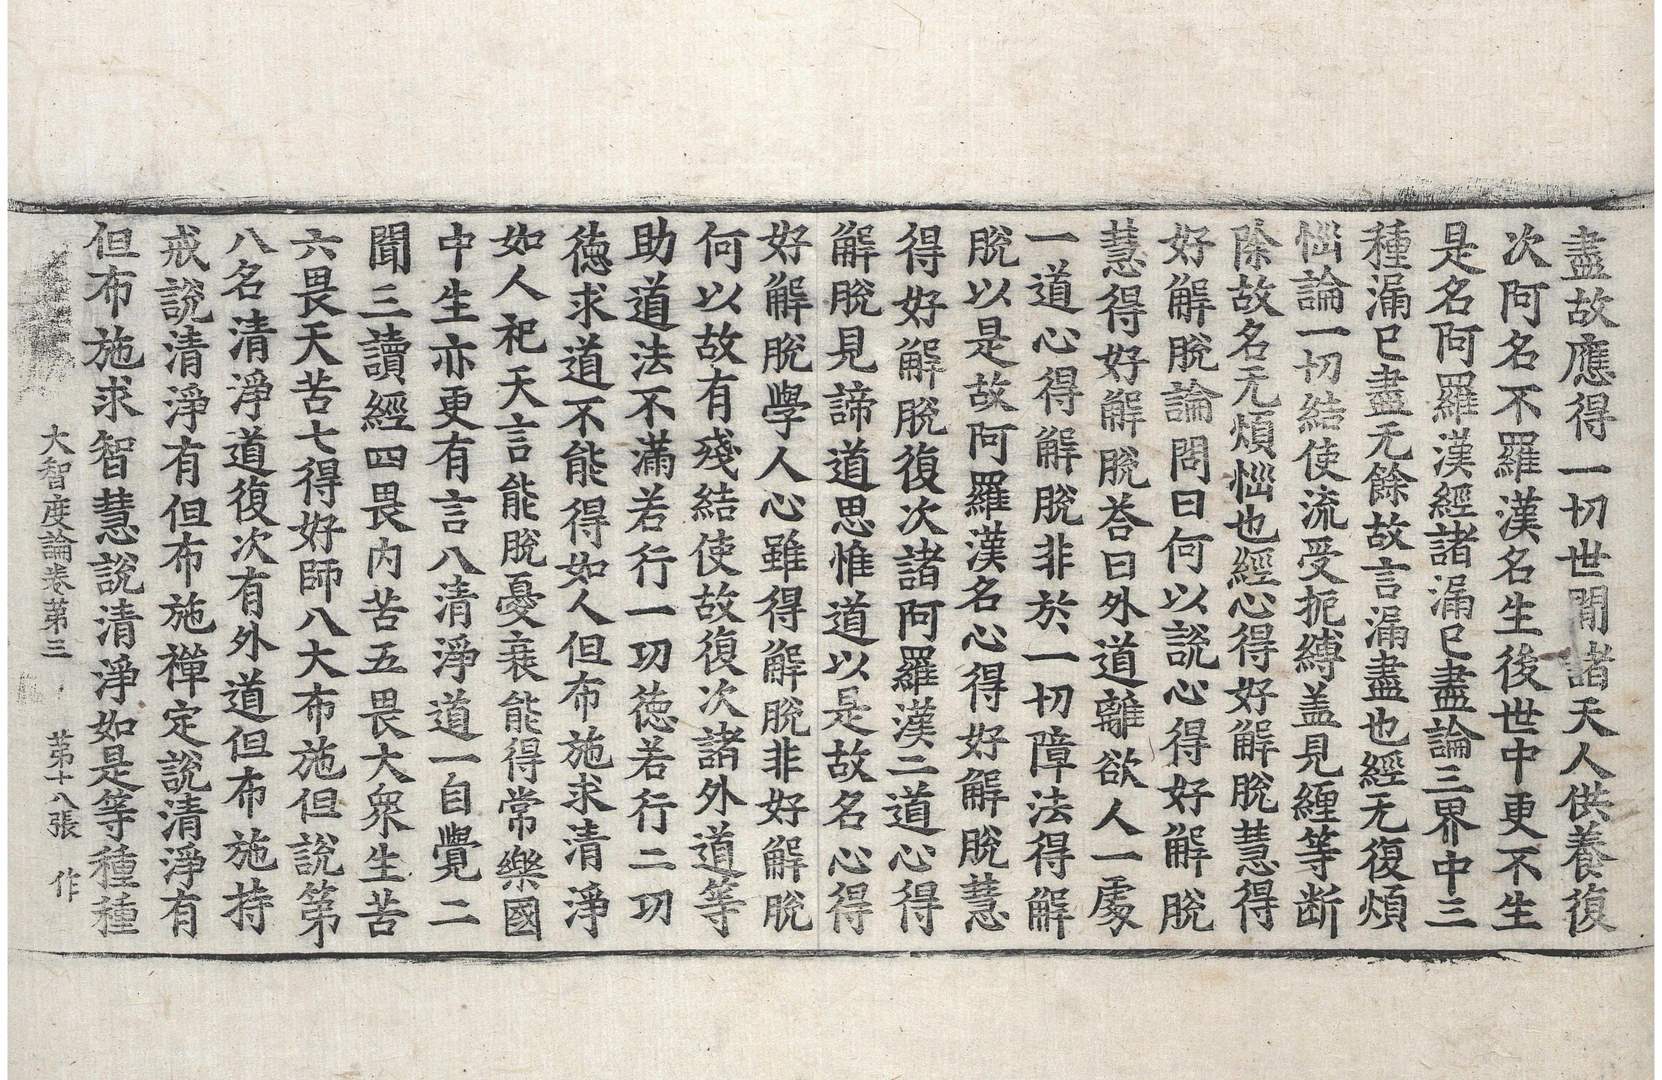 盡故應得一切世間諸天人供養復
次阿名不羅漢名生後世中更不生
是名阿羅漢經諸漏已盡論三界中三
種漏已盡无餘故言漏盡也經无復煩
惱論一切結使流受扼縛盖見纏等断
除故名无煩惱也經心得好解脫慧得
好解脫論問曰何以說心得好解脫
慧得好解脫荅曰外道離欲人一處
一道心得解脫非於一切障法得解
脫以是故阿羅漢名心得好解脫慧
得好解脫復次諸阿羅漢二道心得
解脫見諦道思惟道以是故名心得
好解脫學人心雖得解脫非好解脫
何以故有殘結使故復次諸外道等
助道法不滿若行一功徳若行二功
徳求道不能得如人但布施求清淨
如人祀天言能脫憂衰能得常樂國
中生亦更有言八清淨道一自覺二
聞三讀經四畏內苦五畏大衆生苦
六畏天苦七得好師八大布施但說第
八名清淨道復次有外道但布施持
戒說清淨有但布施禪定說清淨有
但布施求智慧說清淨如是等種種
大智度論卷第三 第十八張 作